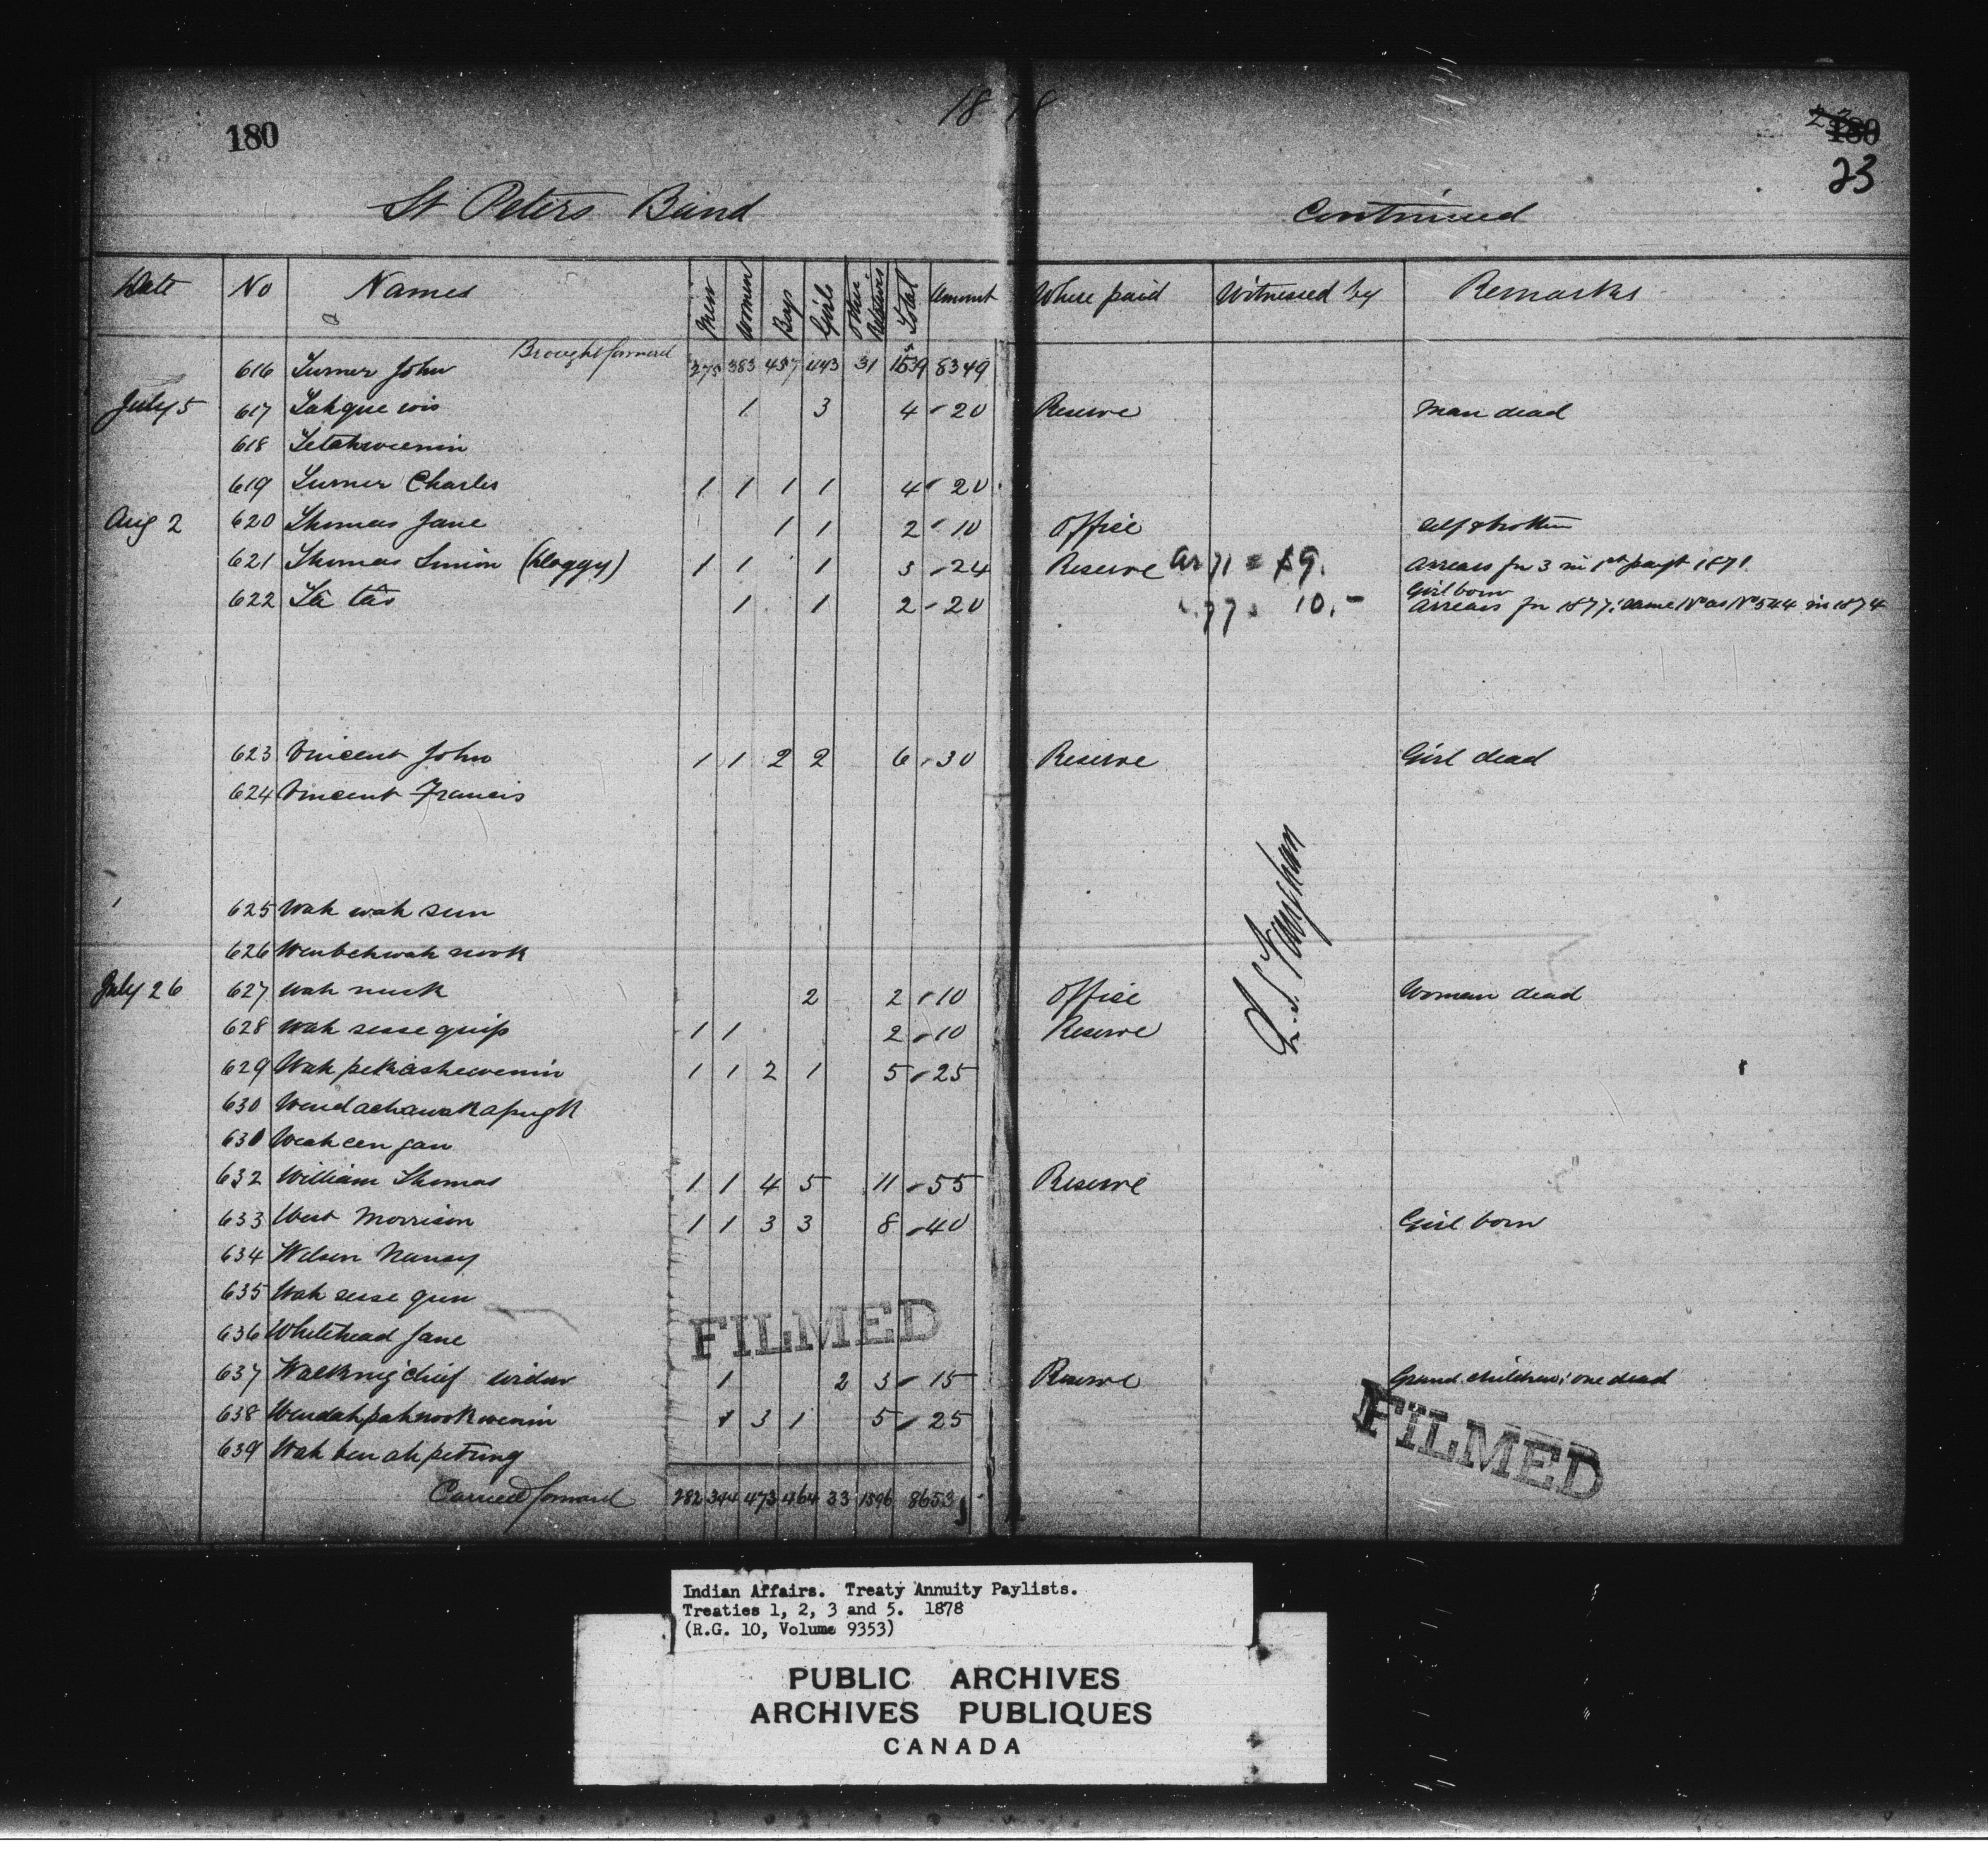 1878
180
180
23
St Peters Band Continued
Date No Names Men Women Boys Girls Other Relatives Total Amount Where paid Witnessed by Remarks
Brought forward
616 Turner John 375 383 457 443 31 1539 8349
July 5 617 Tahque wis 1 3 4 20 Reserve Man dead
618 Tetahweenin
619 Turner Charles 1 1 1 1 4 20
Aug 2 620 Thomas Jane 1 1 2 10 Office Self & brother
621 Thomas Simon (Cloggy) 1 1 1 3 24 Reserve ar 71 = $9. Arrears for 3 in 1st payt 1871
Girl born
622 Tâ tâs 1 1 2 20 " 77 " 10.- Arrears for 1877; same No as No 544 in 1874
623 Vincent John 1 1 2 2 6 30 Reserve Girl dead
624 Vincent Francis
625 Wah wah sun
626 Wenbehwah nook
July 26 627 Wah nuck 2 2 10 Office Woman dead
628 Wah sesse quip 1 1 2 10 Reserve
629 Wah petkashewenin 1 1 2 1 5 25
630 Wendachawakapugk
630 Weah cen gan
632 William Thomas 1 1 4 5 11 55 Reserve
633 West Morrison 1 1 3 3 8 40 Girl born
634 Wilson Nancy
635 Wah sesse gun
636 Whitehead Jane
FILMED
637 Walking chief widow 1 2 3 15 Reserve Grand children; one dead
638 Wendahpahnookwenin 1 3 1 5 25
639 Wah ben ah petung
FILMED
Carried forward 282 344 473 464 33 1596 8653
Indian Affairs. Treaty Annuity Paylists.
Treaties 1, 2, 3 and 5. 1878
(R.G. 10, Volume 9353)
PUBLIC ARCHIVES
ARCHIVES PUBLIQUES
CANADA